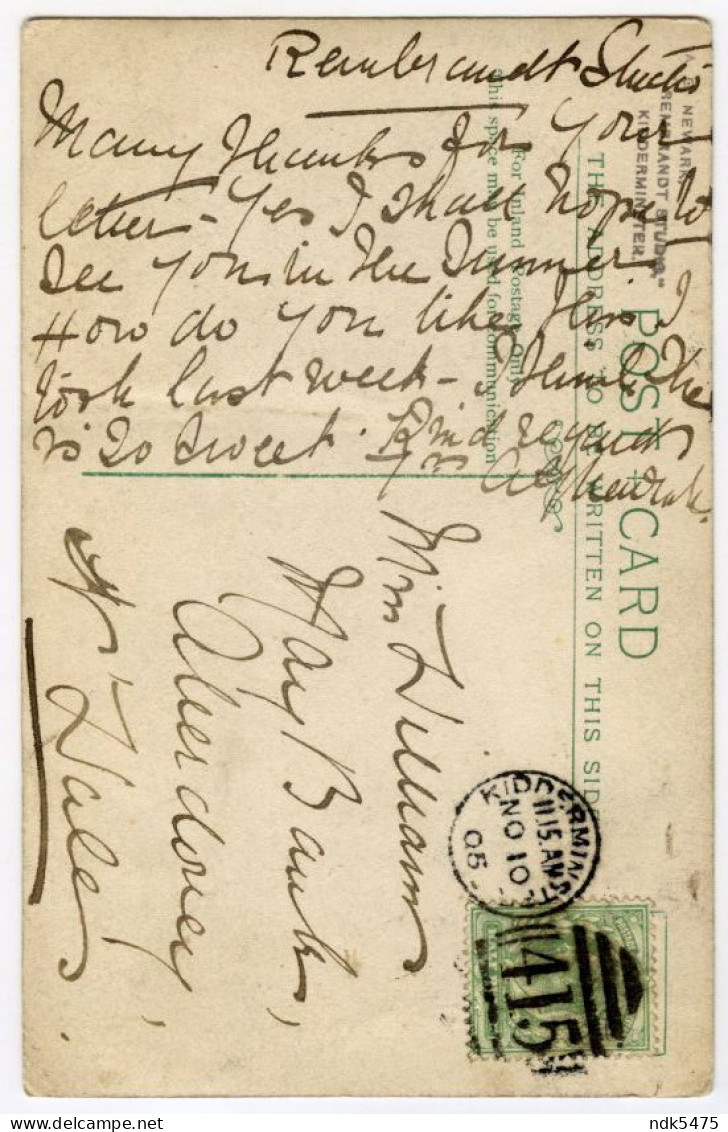 Rembrandt Studio
Many thanks for your
letter - Yes I shall hope to
see you in the Summer
How do you like this I
took last week - I think she
is so sweet. Kind regards
Yrs
Miss Williams
May Bank,
Aberdovey,
N. Wales.
NEWARK
"REMBRANDT STUDIO,"
KIDDERMINSTER.
POST CARD
THE ADDRESS TO BE WRITTEN ON THIS SIDE
For Inland Postage Only
this space may be used for communication
KIDDERMINST
11.15 AM
NO 10
05
415
ndk5475